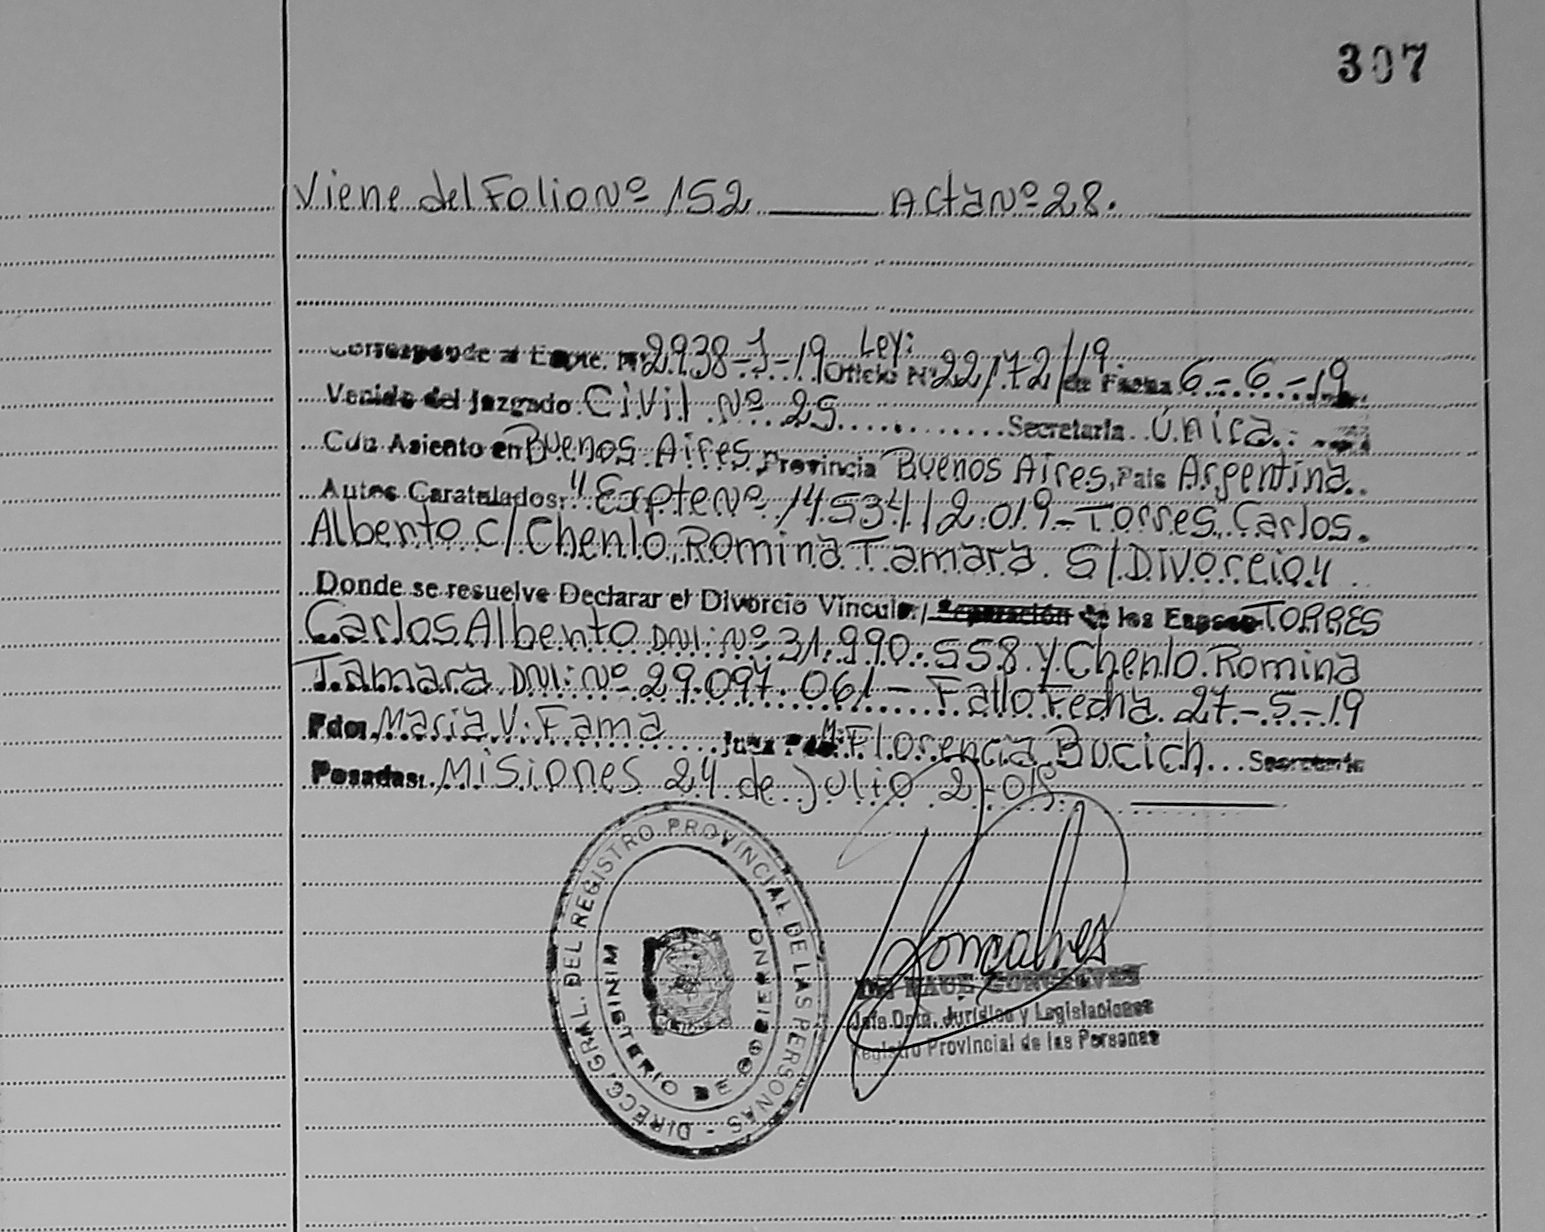 307
Viene del Folio Nº 152 Acta Nº 28.
Ley:
Corresponde al Expte. Nº 2938-J-19 Oficio Nº 22172/19 de Fecha 6-6-19
Venido del Juzgado Civil Nº 25 Secretaría Única.
Con Asiento en Buenos Aires Provincia Buenos Aires, País Argentina.
Autos Caratulados: "Expte Nº 14534/2.019-Torres, Carlos.
Alberto c/ Chenlo, Romina Tamara S/Divorcio"
Donde se resuelve Declarar el Divorcio Vincular/Separación de los Esposos TORRES
Carlos Alberto DNI: Nº 31.990.558 y Chenlo Romina
Tamara DNI: Nº 29.097.061- Fallo Fecha 27-5-19
Fdo. Maria V. Fama Juez Fdo. M. Florencia Bucich Secretario
Posadas: Misiones 24 de Julio
DIRECC. GRAL. DEL REGISTRO PROVINCIAL DE LAS PERSONAS -
MINISTERIO DE GOBIERNO
Goncalves
GONCALVES
Jefe Dpto. Jurídico y Legislaciones
Registro Provincial de las Personas